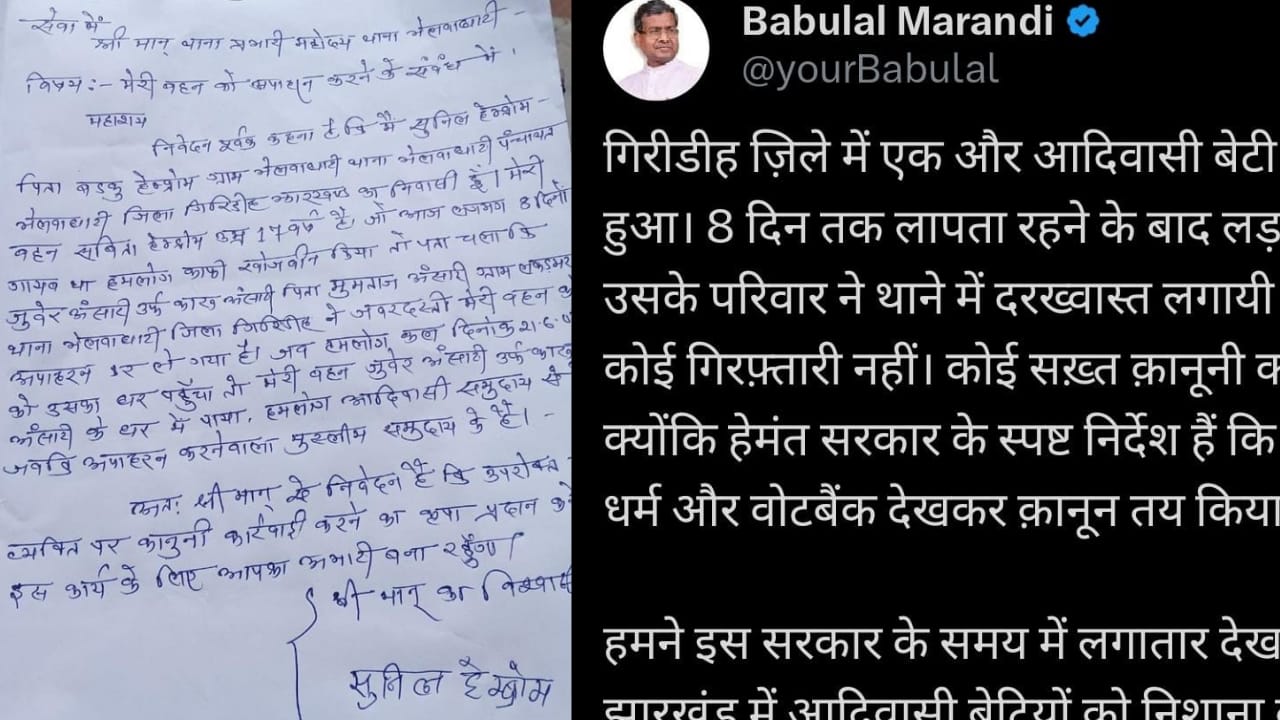 सेवा में
श्री मान् थाना प्रभारी महोदय थाना भेलवाघाटी -
विषय :- मेरी बहन को अपाहरन करने के संबंध में ।
महाशय
निवेदन पूर्वक कहना है कि मैं सुनिल हेम्ब्रोम -
पिता बड़कु हेम्ब्रोम ग्राम भेलवाघाटी थाना भेलवाघाटी पंचायत
भेलवाघाटी जिला गिरिडीह झारखण्ड का निवासी हूँ। मेरी
बहन सबिता हेम्ब्रोम उम्र 17 वर्ष है, जो आज लगभग 8 दिनों
गायब था हमलोग काफी खोजबीन किया तो पता चला कि
जुवेर अंसारी उर्फ कारु अंसारी पिता मुमताज अंसारी ग्राम
थाना भेलवाघाटी जिला गिरिडीह ने जबरदस्ती मेरी बहन को
अपाहरन कर ले गया है। जब हमलोग कल दिनांक 21.6
को उसका घर पहुँचा तो मेरी बहन जुवेर अंसारी उर्फ कारु
अंसारी के घर में पाया, हमलोग आदिवासी समुदाय से
जबकि अपाहरन करनेवाला मुस्लीम समुदाय के है। -
अतः श्री मान् से निवेदन है कि उपरोक्त -
व्यक्ति पर कानुनी कार्रवाई करने का कृपा प्रदान करें
इस कार्य के लिए आपका अभारी बना रहूँगा।
श्री मान् का विश्वासी
सुनिल हेम्ब्रोम
Babulal Marandi
@yourBabulal
गिरीडीह ज़िले में एक और आदिवासी बेटी
हुआ। 8 दिन तक लापता रहने के बाद लड़
उसके परिवार ने थाने में दरख्वास्त लगायी
कोई गिरफ़्तारी नहीं। कोई सख़्त क़ानूनी क
क्योंकि हेमंत सरकार के स्पष्ट निर्देश हैं कि
धर्म और वोटबैंक देखकर क़ानून तय किया
हमने इस सरकार के समय में लगातार देख
झारखंड में आदिवासी बेटियों को निशाना